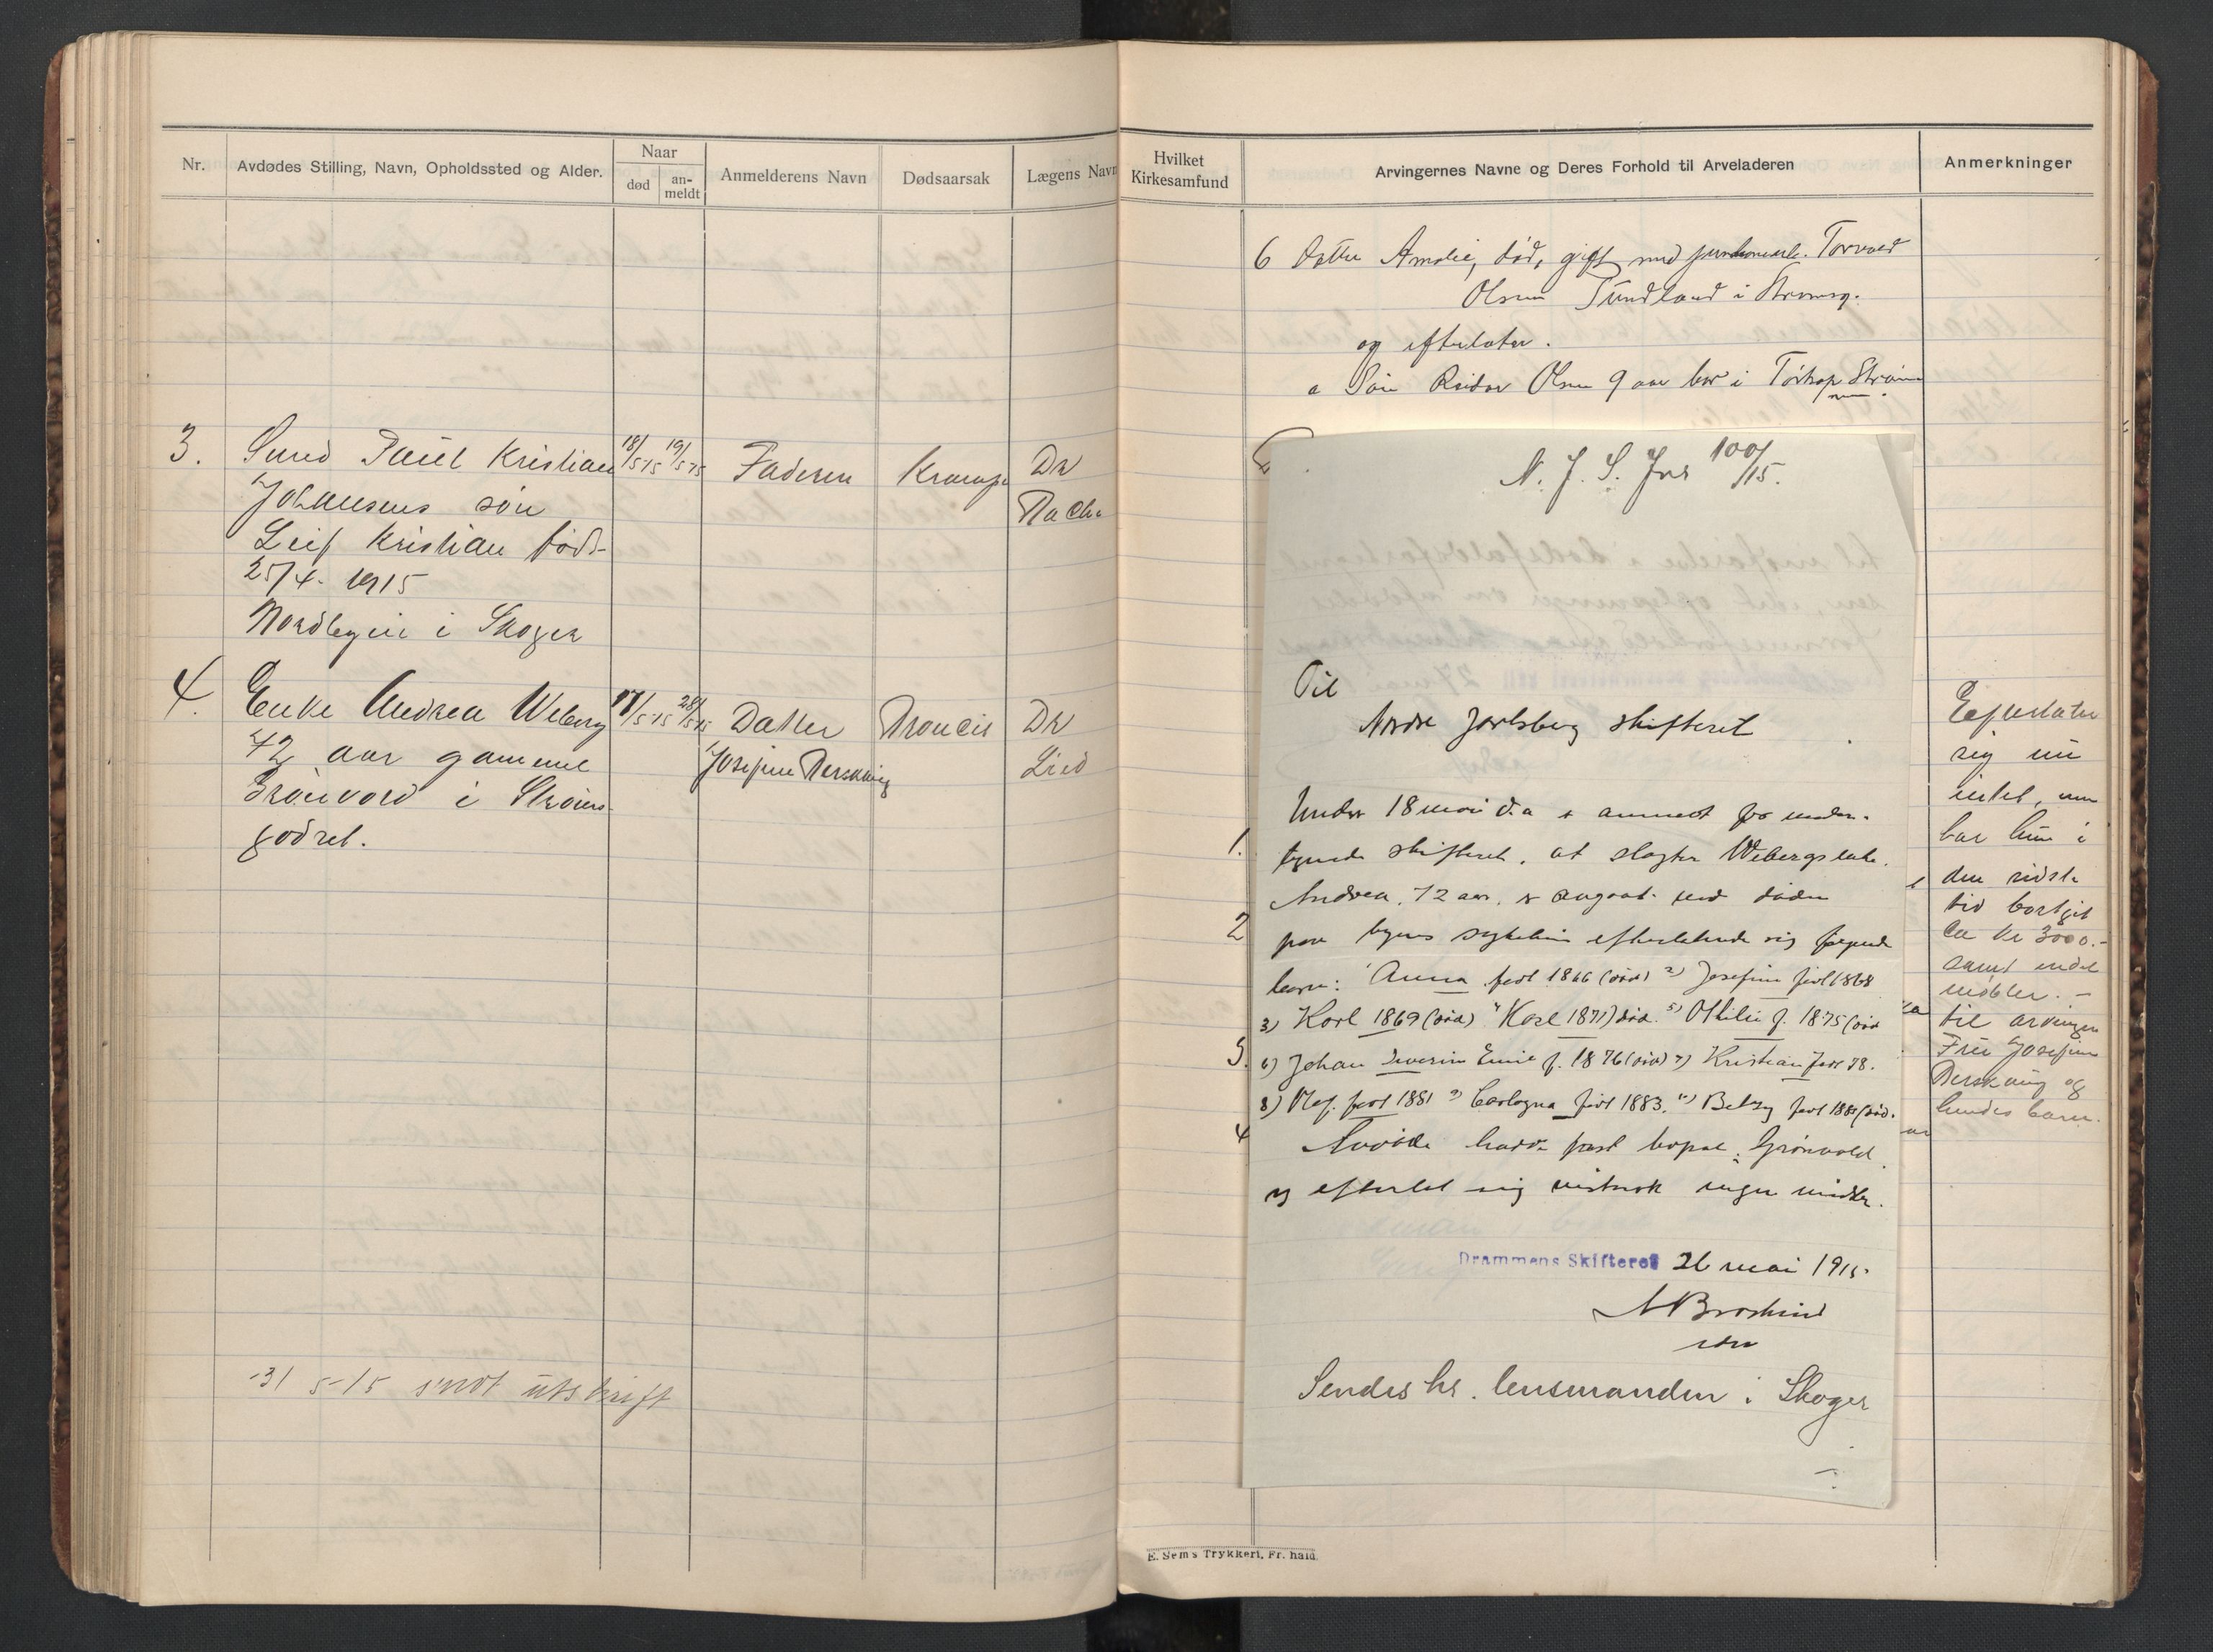 Nr.
Avdødes Stilling, Navn, Opholdssted og Alder.
Naar
død
an-
meldt
Anmelderens Navn
Dødsaarsak
Lægens Navn
3.
Paul Kristian 18/5 15 19/5 15 Faderen Krampe Dr
Johansens søn
Leif Kristian født
25/4. 1915
Nordbyen i Skoger
4.
Enke Andrea Weberg 17/5 15 28/5 15 Datter Dr
72 aar gammel Josefine
Grønvold i Strøms-
godset.
31 5-15 sendt utskrift
Hvilket
Kirkesamfund
Arvingernes Navne og Deres Forhold til Arveladeren
Anmerkninger
6 Datter Amalie, død, gift med Torvald
Olsen Sundland i Strømsg.
og efterlater.
a Søn Reidar Olsen 9 aar bor i
N. J. S. Jnr 100/15.
Til
Nordre Jarlsberg skifteret
Under 18 mai d.a er anmeldt for under-
tegnede skifteret, at slagter Webergs enke
Andrea, 72 aar, er avgaat ved døden
paa byens sykehus efterlatende sig følgende
barn: Anna født 1866 (død) 2) Josefine født 1868
3) Karl 1869 (død) 4) Karl 1871) død. 5) Othilie f. 1875 (død
6) Johan Severin Emil f. 1876 (død) 7) Kristian født 78.
8) Olaf født 1881 9) født 1883. 10) Betzy født (død.
Avdøde hadde fast bopæl: Grønvold
og efterlot sig vistnok ingen midler.
Drammens Skifteret 26 mai 1915.
Sendes hr. lensmanden i Skoger
1.
2
3.
4
Efterlater
sig nu
intet, men
har hun i
den sidste
tid bortgit
ca kr 3000.-
samt endel
møbler. -
til arvingen
Fru Josefine
og
hendes barn.
E. Sem's Trykkeri, Fr.hald.